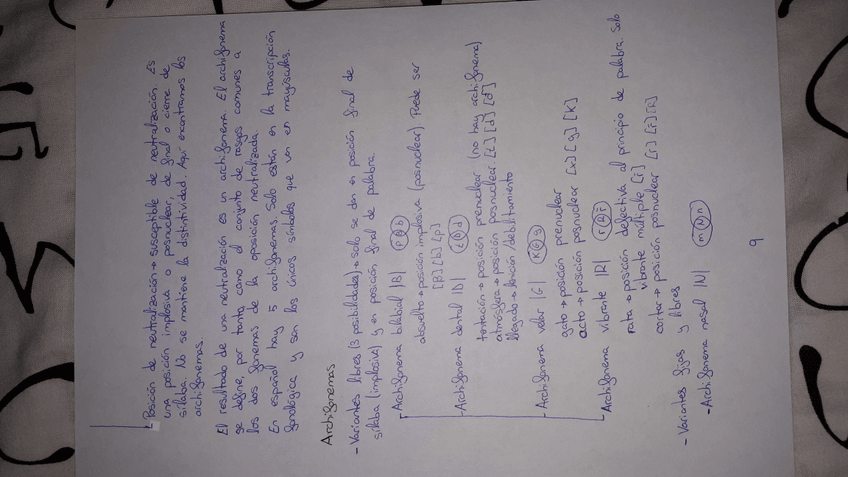 Posición de neutralización → susceptible de neutralización. Es
una posición implosiva o posnuclear, de final o cierre de
sílaba. No se mantiene la distintividad. Aquí encontramos los
archifonemas.
El resultado de una neutralización es un archifonema. El archifonema
se define, por tanto, como el conjunto de rasgos comunes a
los dos fonemas de la oposición neutralizada.
En español hay 5 archifonemas. Solo están en la transcripción
fonológica y son los únicos símbolos que van en mayúsculas.
Archifonemas
- Variantes libres (3 posibilidades) → solo se dan en posición final de
sílaba (implosiva) y en posición final de palabra.
- Archifonema bilabial |B| p B b
absuelto → posición implosiva (posnuclear). Puede ser
[β] [b] [p]
- Archifonema dental |D| t D d
tentación → posición prenuclear (no hay archifonema)
atmósfera → posición posnuclear [t] [d] [đ]
llegado → lenición/debilitamiento
- Archifonema velar |G| K G g
gato → posición prenuclear
acto → posición posnuclear [ɣ] [g] [K]
- Archifonema vibrante |R| r R r̄
rata → posición defectiva al principio de palabra. Solo
vibrante múltiple [r̄]
cortar → posición posnuclear [r] [r̄]
- Variantes fijas y libres
- Archifonema nasal |N| m N n
9